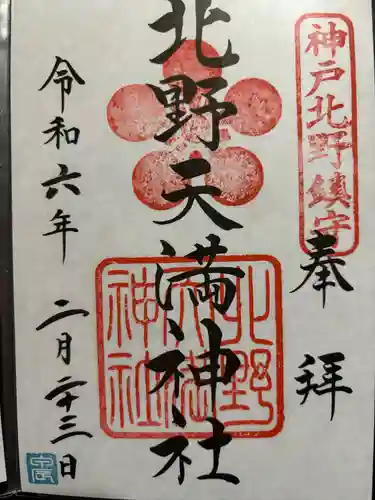 神戸北野鎮守
奉拝
北野天満神社
北野
天満
神社
令和六年
二月二十三日